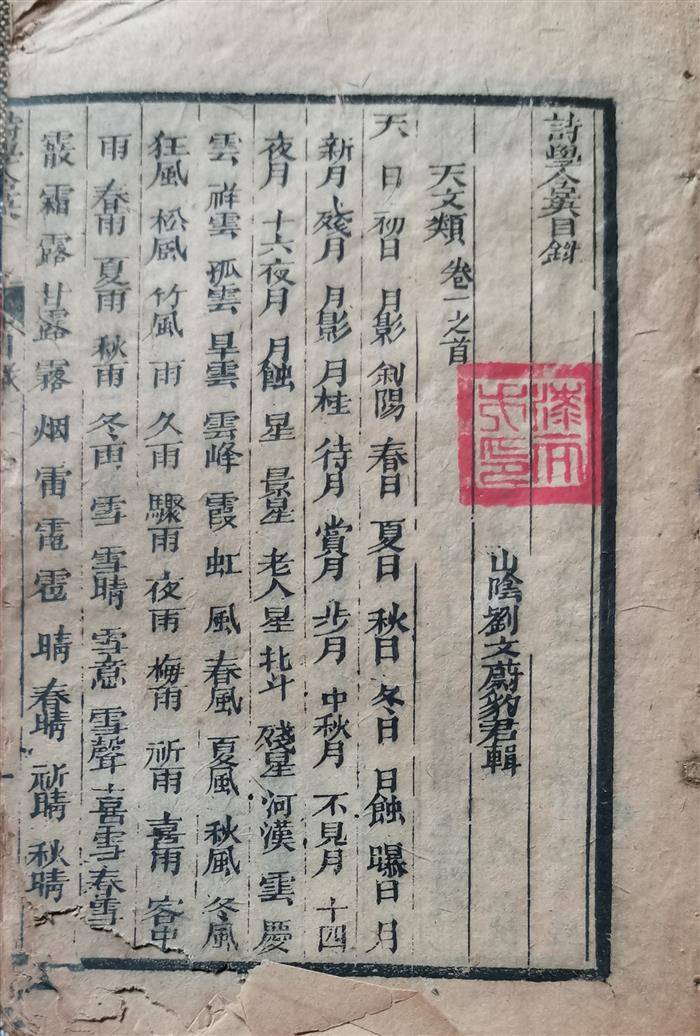 詩學含英目錄
山陰劉文蔚豹君輯
天文類 卷一之首
天 日 初日 月影 斜陽 春日 夏日 秋日 冬日 日蝕 曝日 月
新月 殘月 月影 月桂 待月 賞月 步月 中秋月 不見月 十四
夜月 十六夜月 月蝕 星 景星 老人星 北斗 殘星 河漢 雲 慶
雲 祥雲 孤雲 旱雲 雲峰 霞 虹 風 春風 夏風 秋風 冬風
狂風 松風 竹風 雨 久雨 驟雨 夜雨 梅雨 祈雨 喜雨 客中
雨 春雨 夏雨 秋雨 冬雨 雪 雪晴 雪意 雪聲 喜雪 春雪
霰 霜 露 甘露 霧 烟 雷 電 雹 晴 春晴 祈晴 秋晴
詩學含英
目錄